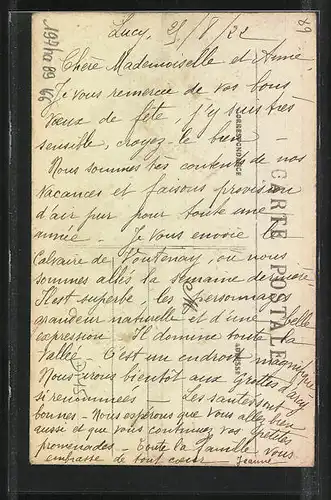 Lucy, 25/8/22
Chère Mademoiselle et Amie
Je vous remercie de vos bons
vœux de fête, j'y suis très
sensible, croyez-le bien –
Nous sommes très contents de nos
vacances et faisons provision
d'air pur pour toute une
année – Je vous envoie le
Calvaire de Fontenay, où nous
sommes allés la semaine dernière –
Il est superbe – les personnages
grandeur naturelle et d'une belle
expression – Il domine toute la
vallée – C'est un endroit magnifique
Nous irons bientôt aux Grottes d'Arcy
si renommées – Les santés sont
bonnes – Nous espérons que vous allez bien
aussi et que vous continuez vos petites
promenades – Toute la famille vous
embrasse de tout cœur Jeanne
CARTE POSTALE
CORRESPONDANCE
ADRESSE
89